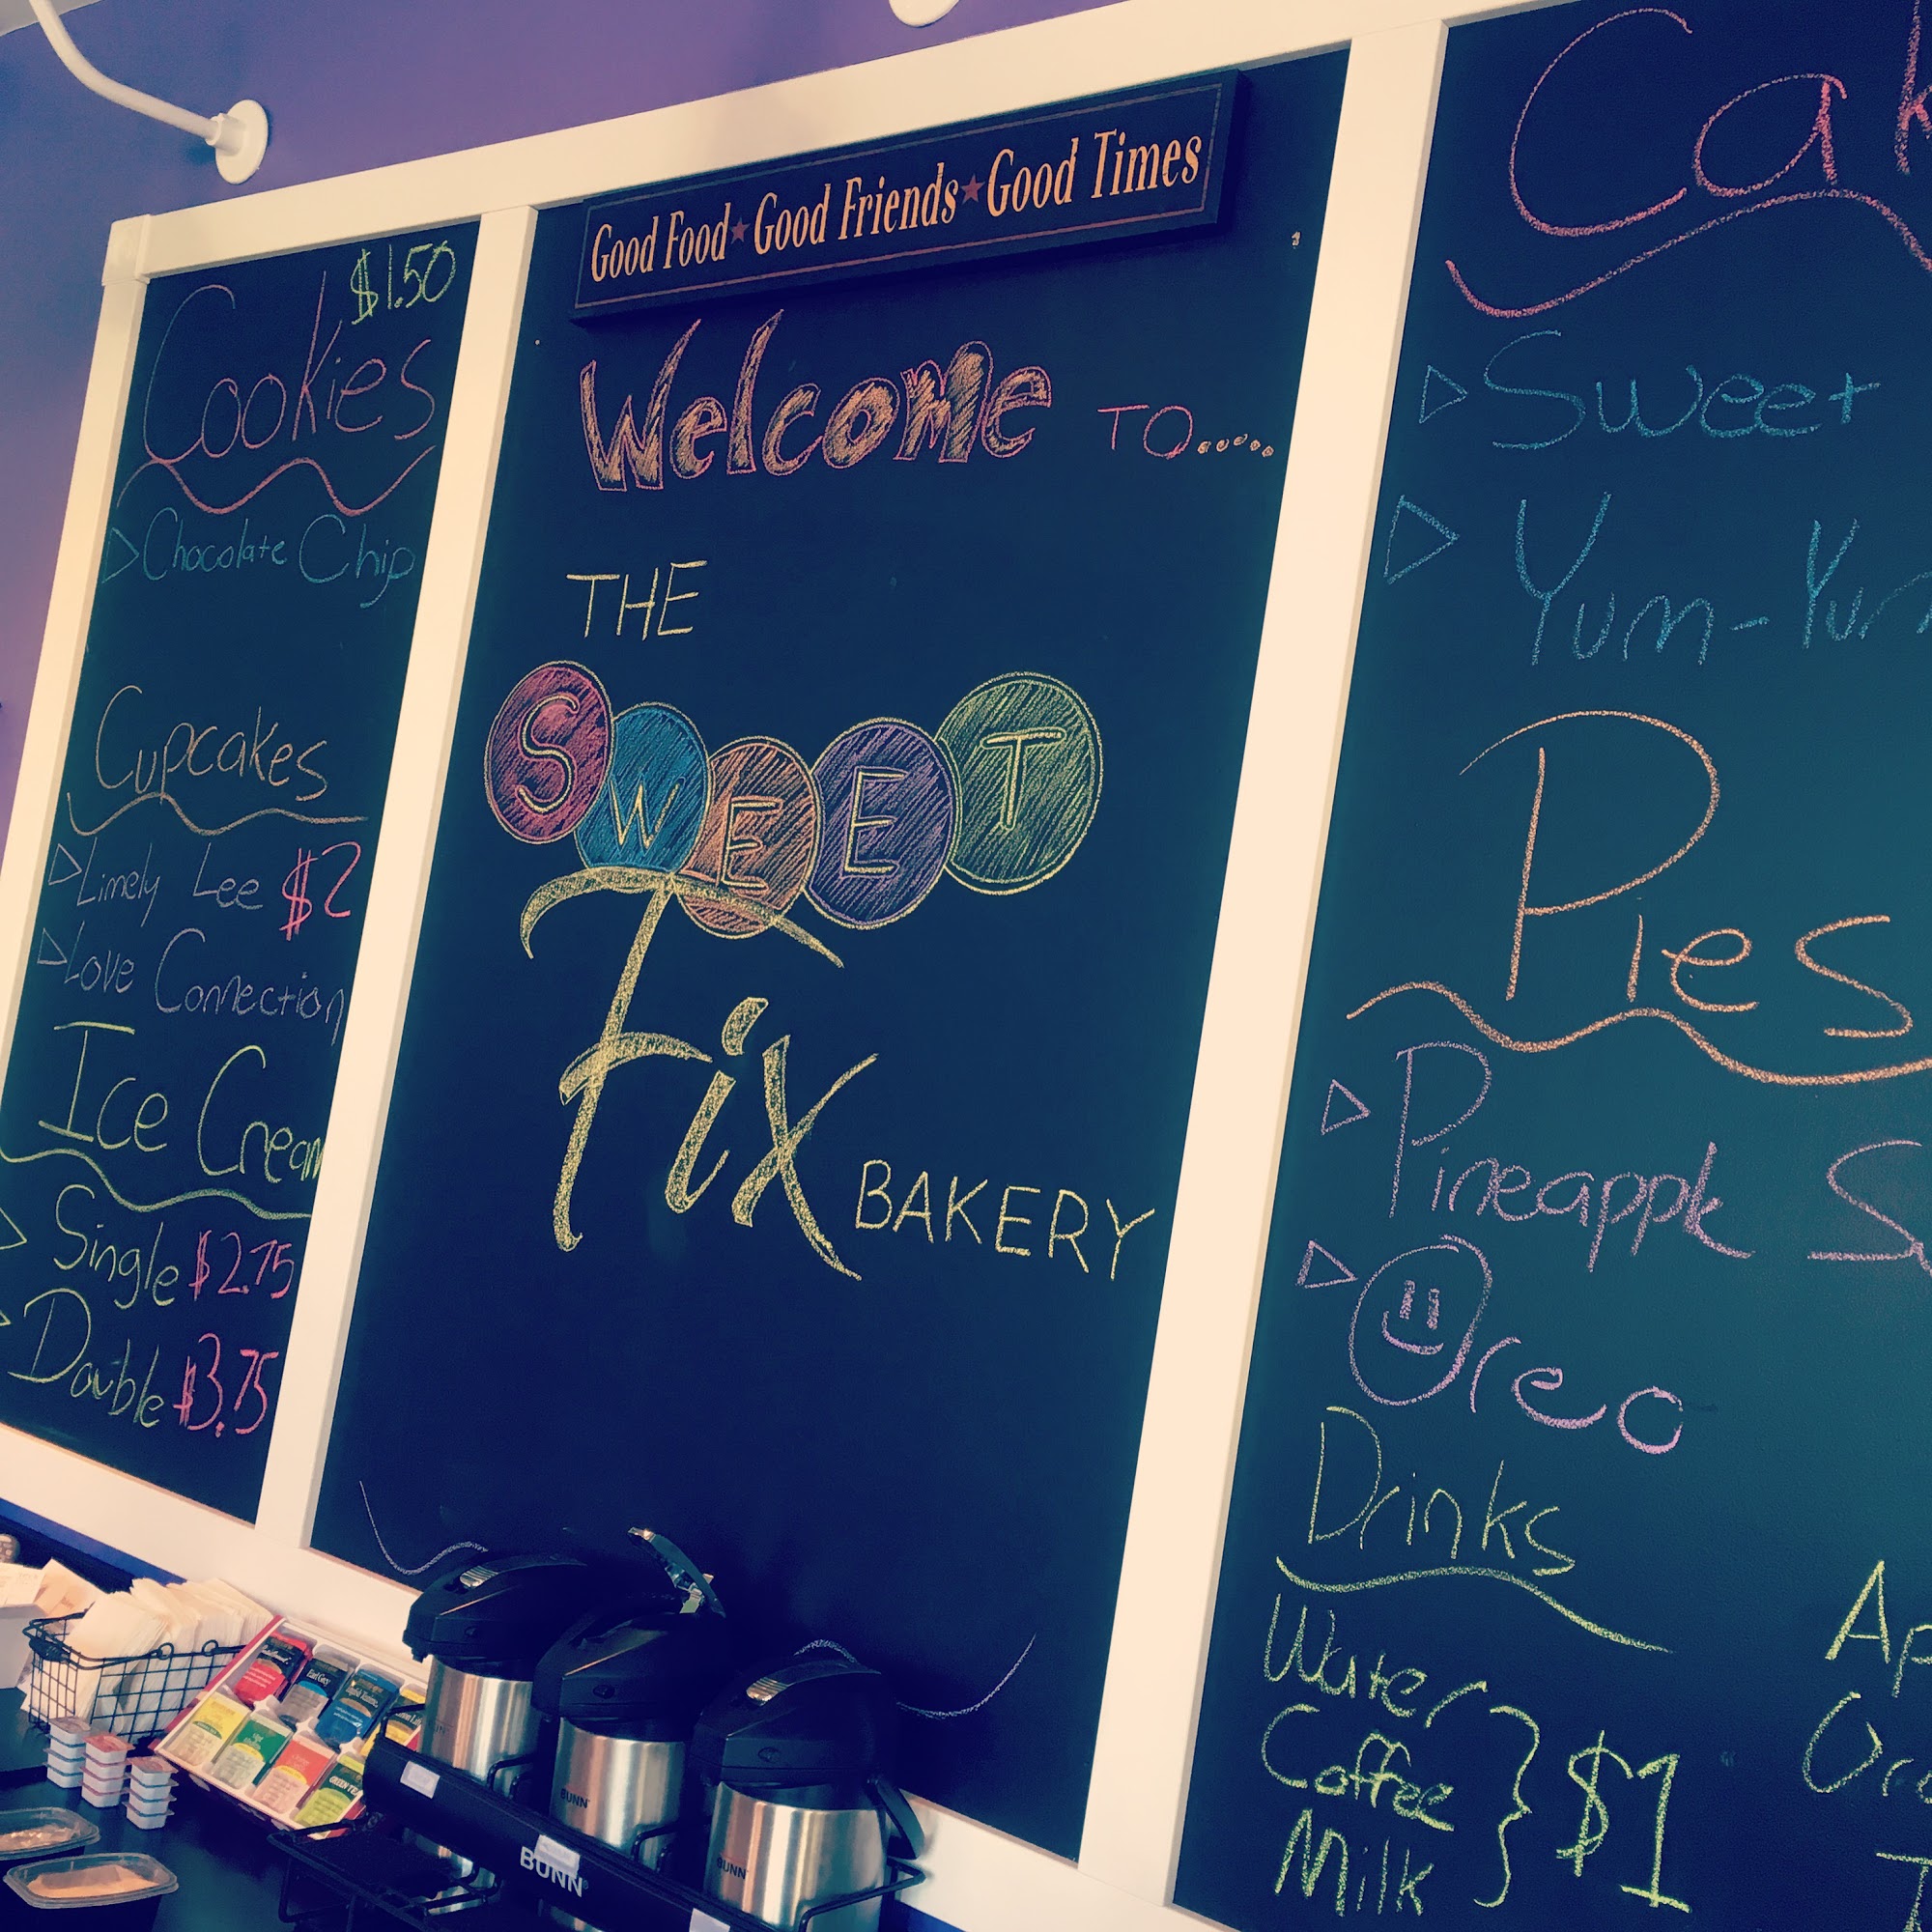 Good Food★Good Friends★Good Times
$1.50
Cookies
Chocolate Chip
Cupcakes
Limely Lee $2
Love Connection
Ice Cream
Single $2.75
Double $3.75
Welcome TO.....
THE
SWEET
Fix BAKERY
Sweet
Pies
Pineapple
Oreo
Drinks
Water
Coffee
Milk
$1
Earl Grey
GREEN TEA
BUNN
BUNN
BUNN